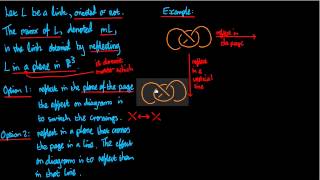 Let L be a link, oriented or not.
The mirror of L, denoted mL,
is the link obtained by reflecting
L in a plane in ℝ³.
is doesn't
matter which
Option 1: reflect in the plane of the page
the effect on diagrams is
to switch the crossings.
Option 2: reflect in a plane that crosses
the page in a line. The effect
on diagrams is to reflect them
in that line.
Example:
reflect in
the page
reflect
in a
vertical
line